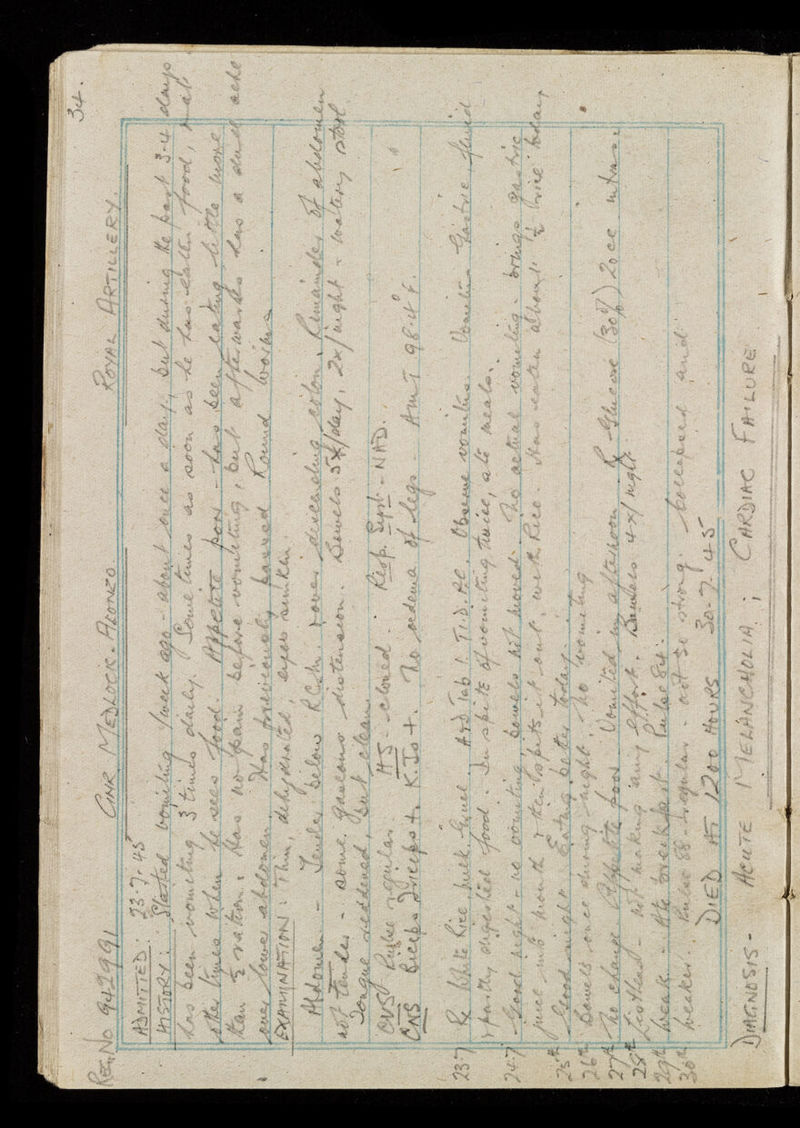 34.
Reg. No 942991 GNR MEDLOCK. ALONZO ROYAL ARTILLERY.
ADMITTED: 23.7.45
HISTORY: Started vomiting 1 week ago - about once a day, but during the past 3-4 days
has been vomiting 3 times daily. Sometimes as soon as he has eaten food, &
other times when he sees food. Appetite poor - has been eating little more
than ½ ration. Has no pain before vomiting, but afterwards has a dull ache
over lower abdomen. Has previously passed Round Worms
EXAMINATION: Thin, dehydrated, eyes sunken.
Abdomen - Tender below R.C.M. & over descending colon. Remainder of abdomen
not tender - some gaseous distension. Bowels 5x/day, 2x/night - watery stool
Tongue reddened, but clean
CVS Pulse regular. HS - closed. Resp. Syst - NAD.
CNS Biceps Triceps +. K.Js +. No oedema of legs. Am T 98.4°F.
23.7 Rx White Rice, milk, Gruel. A&D Tab 1 T.I.D. AC. Observe vomitus. Vomitus Gastric fluid
& partly digested food. In spite of vomiting twice, ate meals.
24.7 Good night - no vomiting bowels not moved. No actual vomiting - brings gastric
juice into mouth & then spits it out, with Rice. Has eaten about ½ rice today
25th Good night. Eating better today.
26th Bowels once during night. No vomiting
27th No change Appetite poor. Vomited in afternoon Rx Glucose (30%) 20cc intrav.
28th Listless - not making any effort. Bowels 4x/night.
29th Weak - Ate breakfast. Pulse 84.
30th Weaker. Pulse 88 - regular - not so strong. Collapsed and
DIED AT 1200 HOURS 30.7.45
DIAGNOSIS - ACUTE MELANCHOLIA; CARDIAC FAILURE